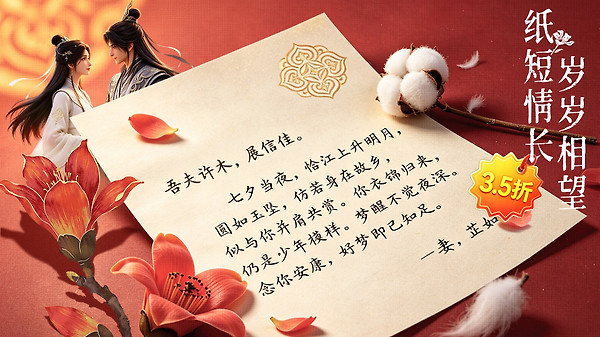 纸短情长
岁岁相望
3.5折
吾夫许木，展信佳。
七夕当夜，恰江上升明月，
圆如玉坠，仿若身在故乡，
似与你并肩共赏。你衣锦归来，
仍是少年模样。梦醒不觉夜深。
念你安康，好梦即已知足。
一妻，芷如